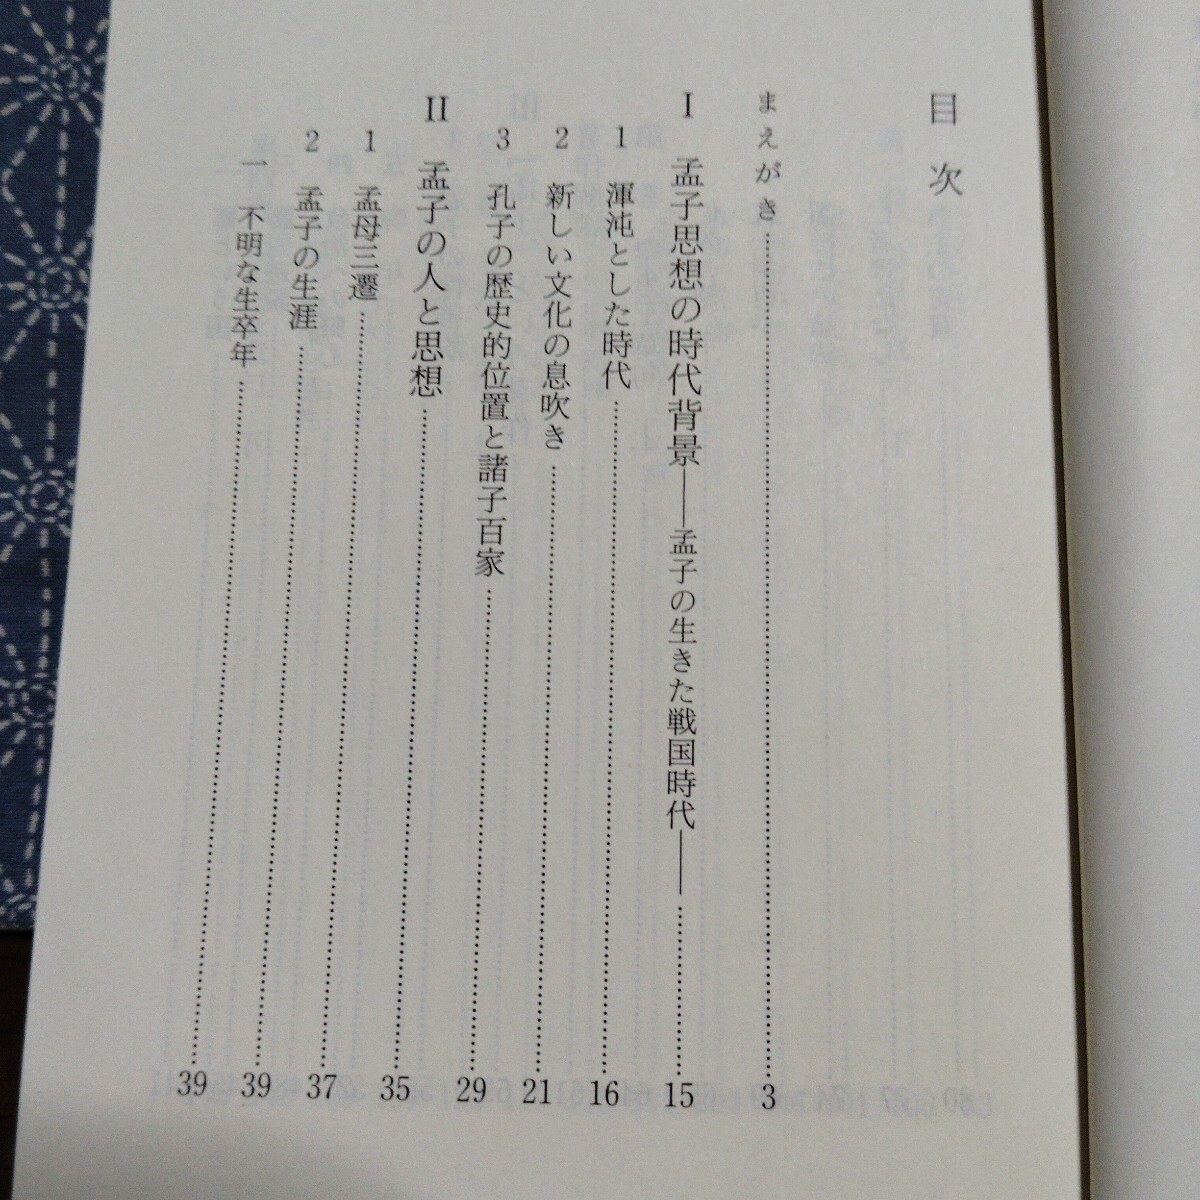 目次
まえがき……3
I 孟子思想の時代背景――孟子の生きた戦国時代――……15
1 渾沌とした時代……16
2 新しい文化の息吹き……21
3 孔子の歴史的位置と諸子百家……29
II 孟子の人と思想……35
1 孟母三遷……37
2 孟子の生涯……39
一 不明な生卒年……39